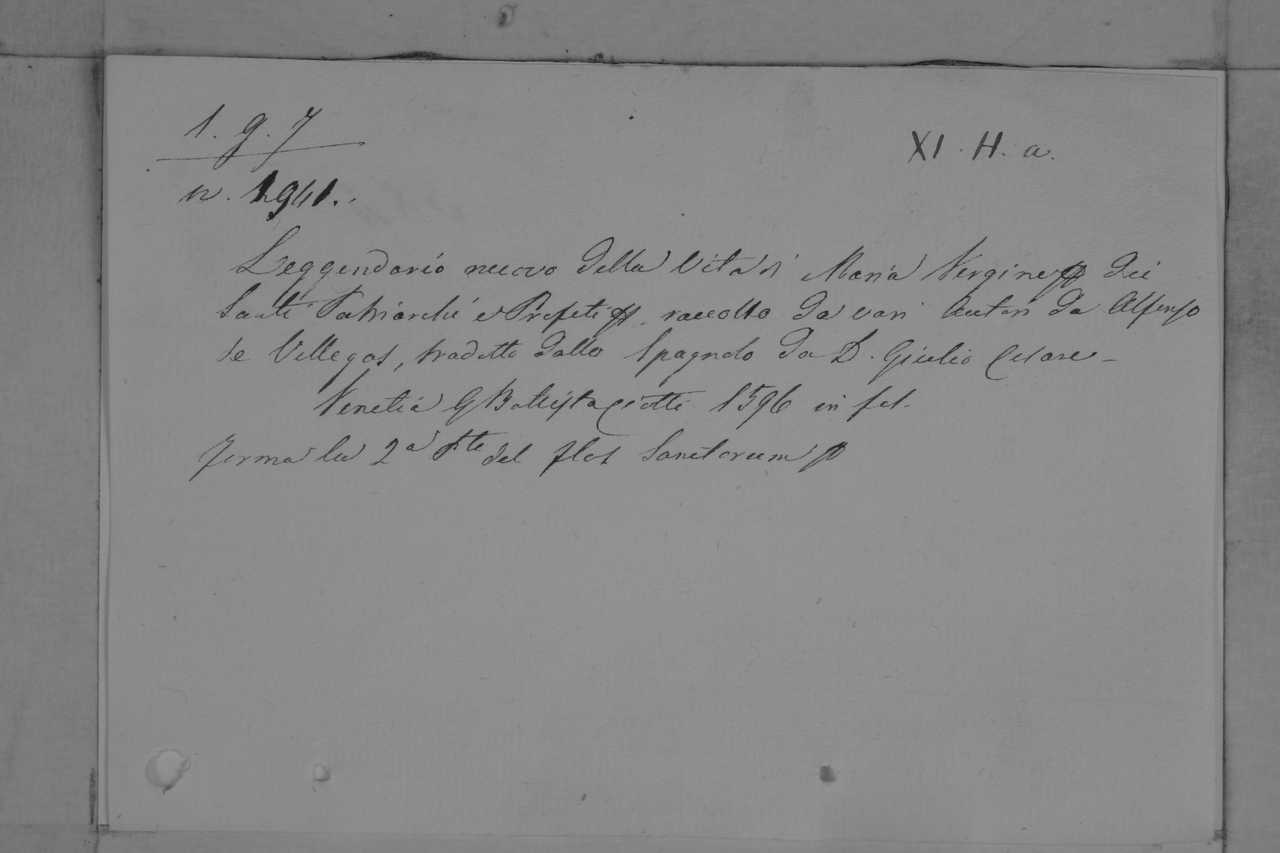 1. g. 7
XI. H. a.
n. 1941.
Leggendario nuovo della Vita di Maria Vergine dei
Santi Patriarchi e Profeti raccolto da vari Autori da Alfonso
de Villegas, tradotto dallo Spagnolo da D. Giulio Cesare
Venetia G Battista Ciotti 1596 in fol.
forma la 2a Pte del flos Sanctorum